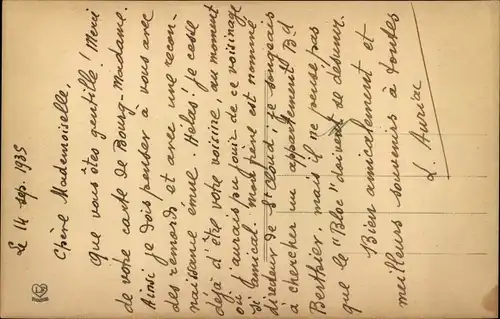 Le 14 sep. 1935
Chère Mademoiselle,
Que vous êtes gentille! Merci
de votre carte de Bourg-Madame.
Ainsi je dois penser à vous avec
des remords et avec une recon-
naissance émue. Hélas! je cesse
déjà d'être votre voisine, au moment
où j'aurais pu jouir de ce voisinage
si amical. Mon père est nommé
directeur de St Cloud; je songeais
à chercher un appartement Bd
Berthier, mais il ne pense pas
que le "Bloc" doivent se désunir.
Bien amicalement et
meilleurs souvenirs à toutes
L. Auriac